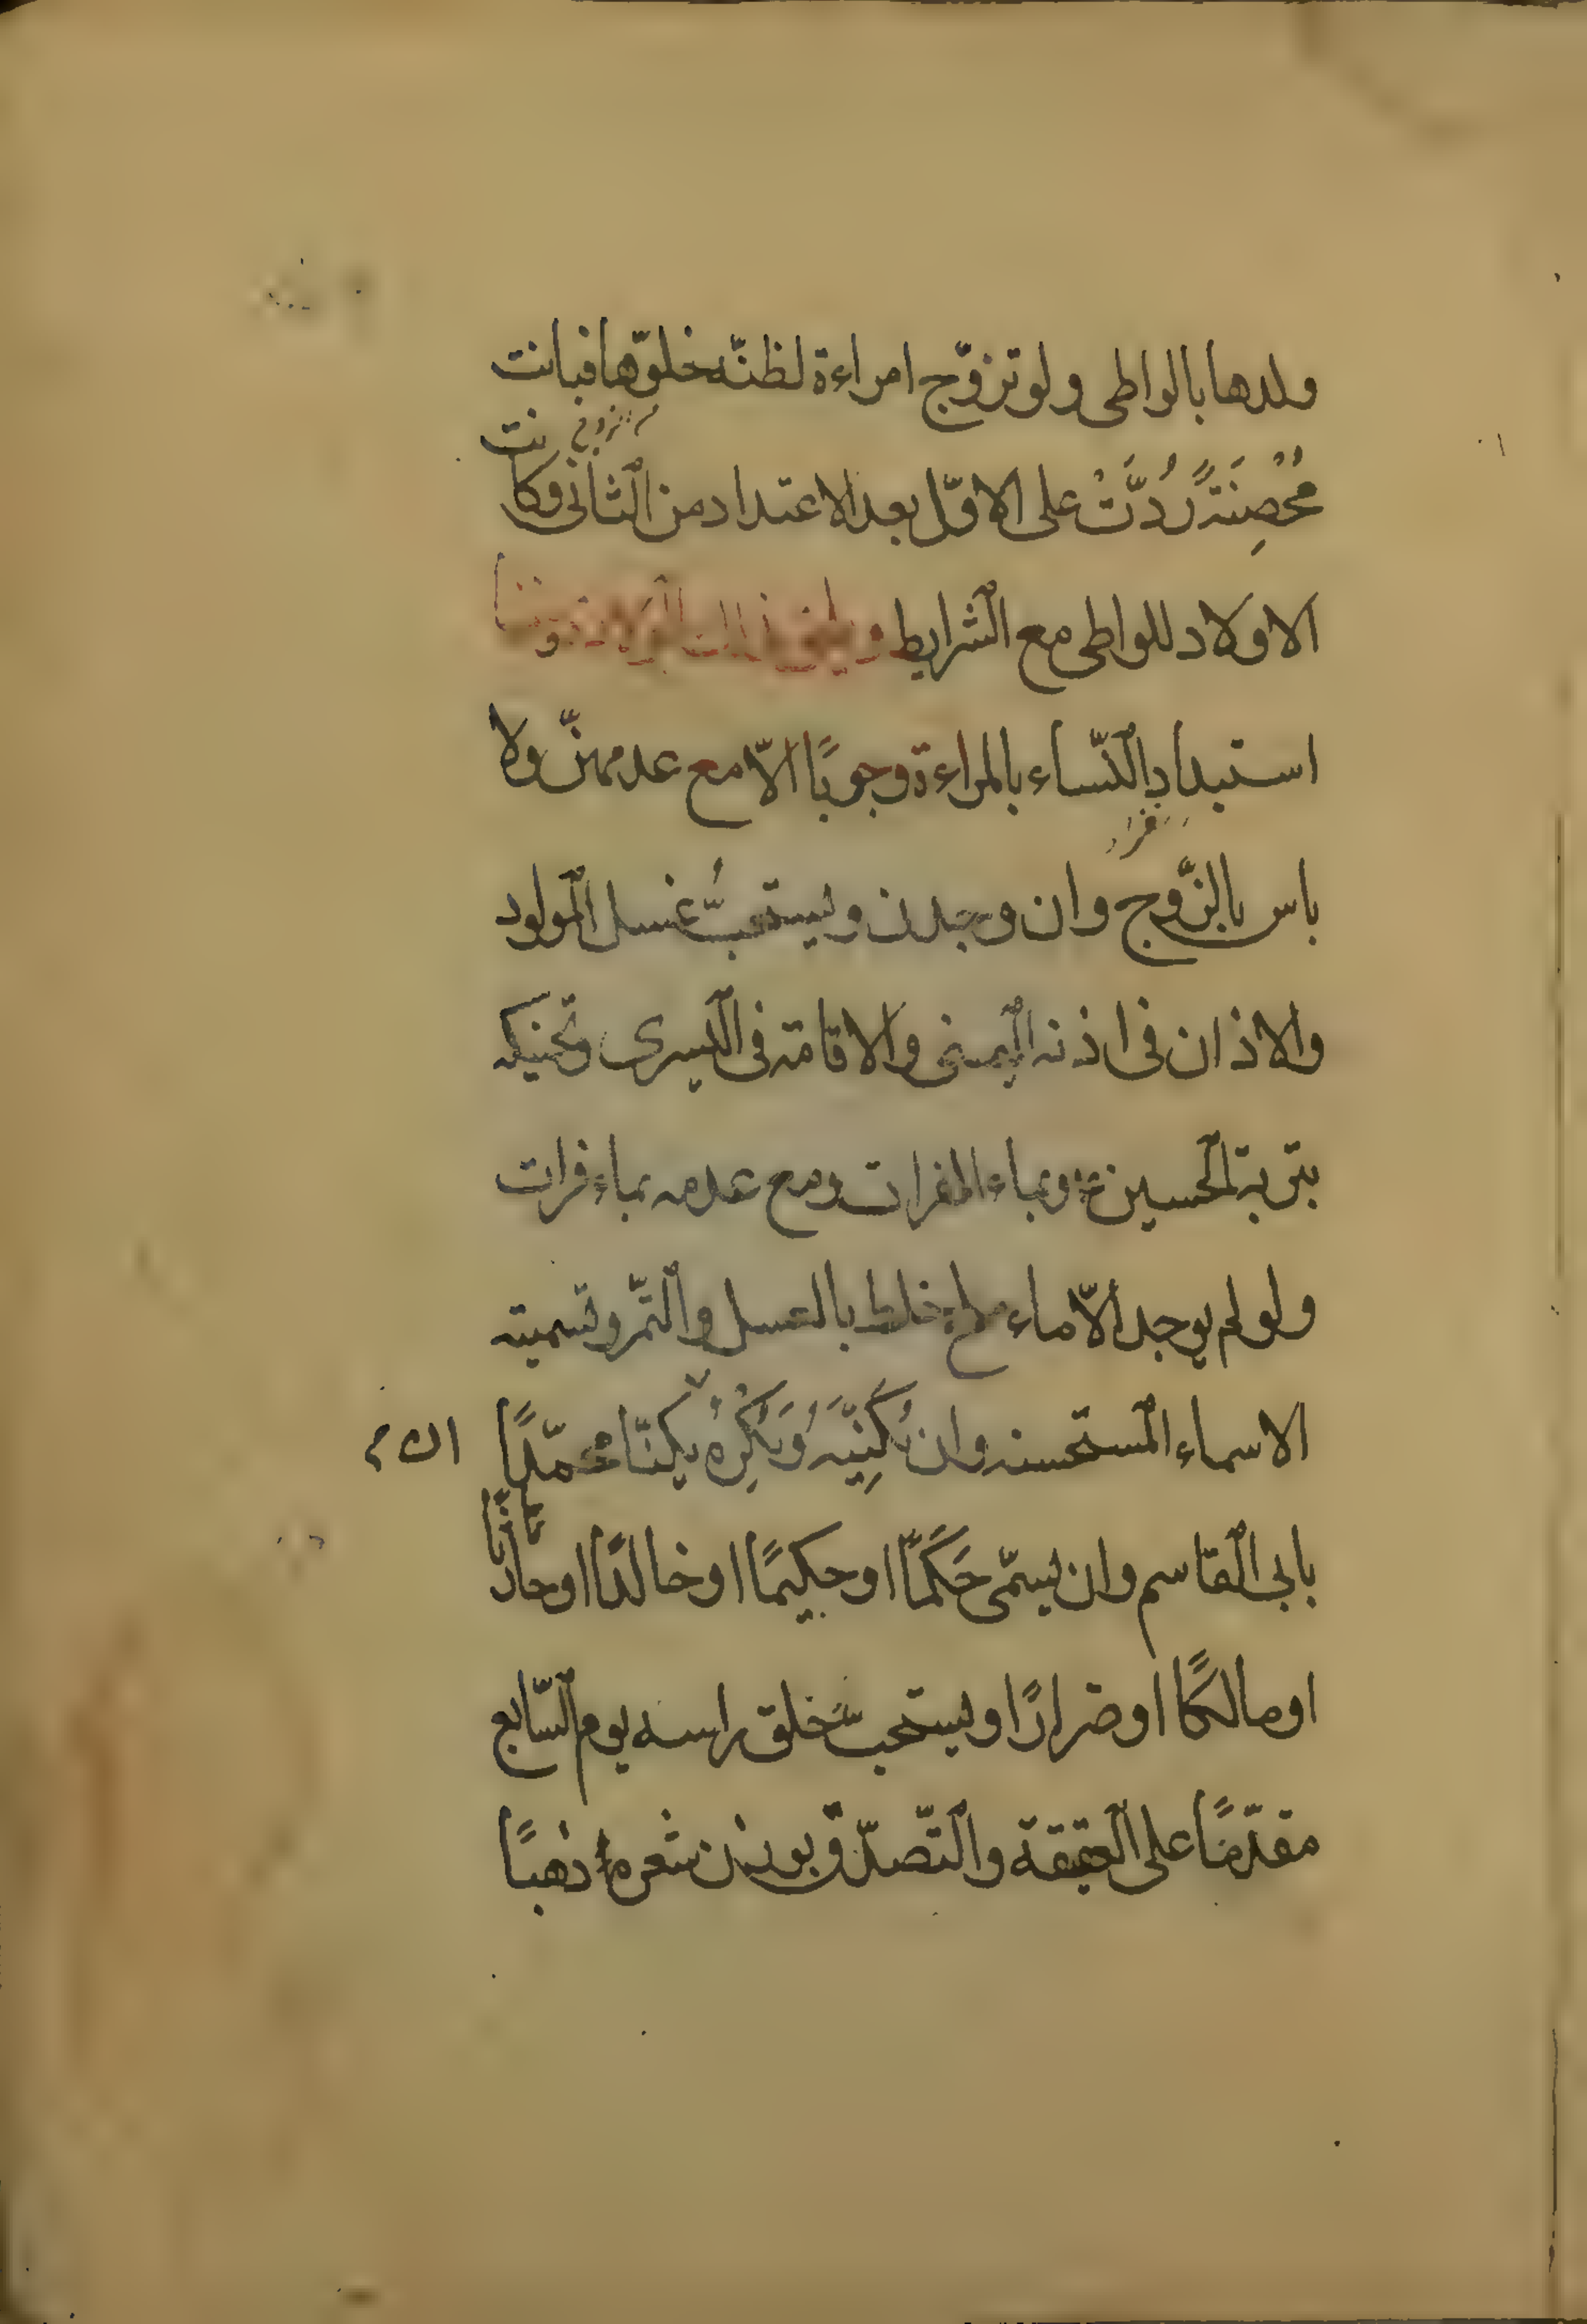 ولدها بالواطى ولو تزوّج امراءة لظنّه خلوّها فبانت
مُحْصِنَةً رُدَّتْ على الاوّل بعد الاعتداد من الثانى وكانت
الاولاد للواطى مع الشرايط
استبداد النّساء بالمراءة وجوبًا الّا مع عدمهنّ ولا
باس بالزّوج وان وجدن ويستحبُّ غسل المولود
والاذان فى اذنه اليمنى والاقامة فى اليسرى وتحنيكه
بتربة الحسين ع وبماء الفرات ومع عدمه بماء فرات
ولو لم يوجد الّا ماء ملح خلط بالعسل والتّمر وتسميته
الاسماء المستحسنه وان يُكَنِّيَهُ وَيُكْرَهُ يكنّا محمّدًا
بابى القاسم وان يسمّى حَكَمًا او حكيمًا او خالدًا او حارثا
او مالكًا او ضرارًا ويستحبّ حلق راسه يوم السّابع
مقدّمًا على العقيقة والتّصدّق بوزن شعره ذهبًا